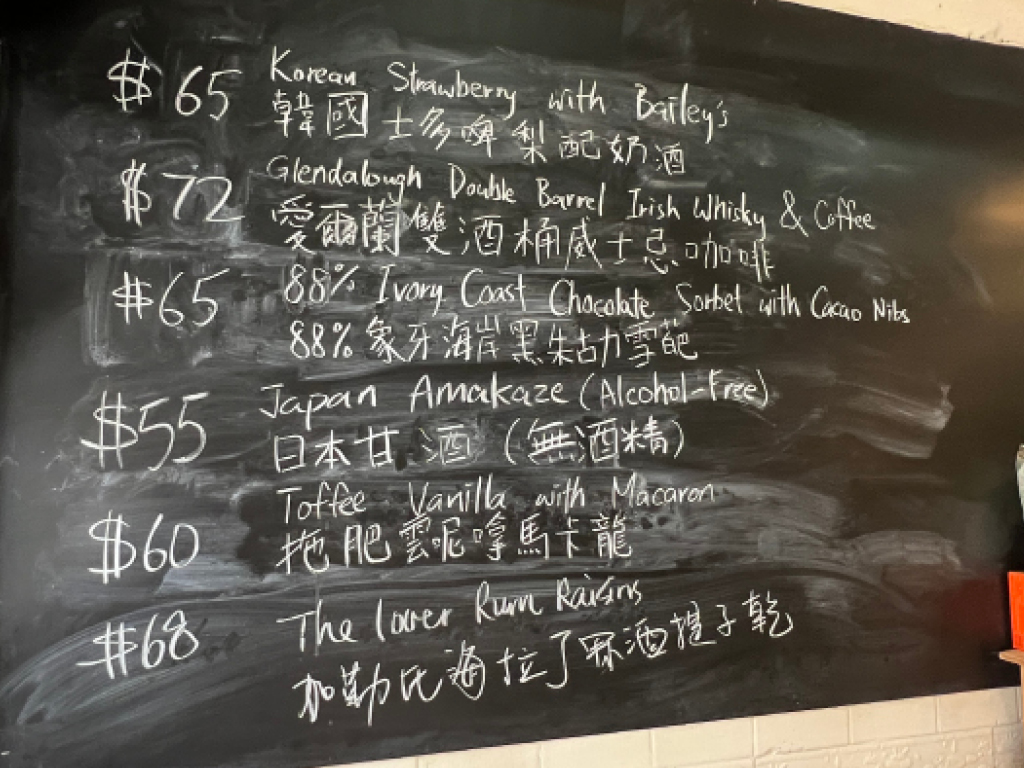 $65 Korean Strawberry with Bailey's
韓國士多啤梨配奶酒
$72 Glendalough Double Barrel Irish Whisky & Coffee
愛爾蘭雙酒桶威士忌咖啡
$65 88% Ivory Coast Chocolate Sorbet with Cacao Nibs
88% 象牙海岸黑朱古力雪葩
$55 Japan Amakaze (Alcohol-Free)
日本甘酒 (無酒精)
$60 Toffee Vanilla with Macaron
拖肥雲呢拿馬卡龍
$68 The lover Rum Raisins
加勒比海拉丁冧酒提子乾